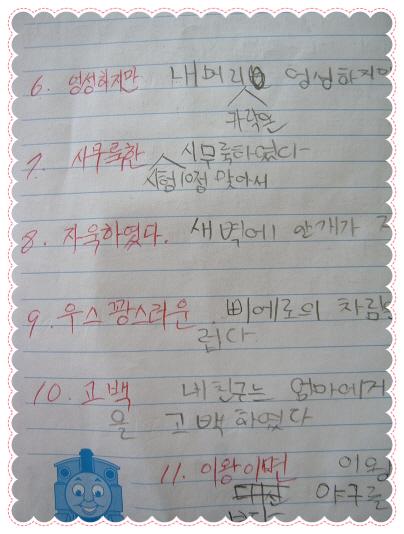 6. 엉성하지만 내머리 엉성하지만
카락은
7. 시무룩한 시무룩하였다
시험10점 맞아서
8. 자욱하였다. 새벽에 안개가 자
9. 우스꽝스러운 삐에로의 차림
럽다
10. 고백 내친구는 엄마에게
을 고백하였다
11. 이왕이면 이왕
야구를